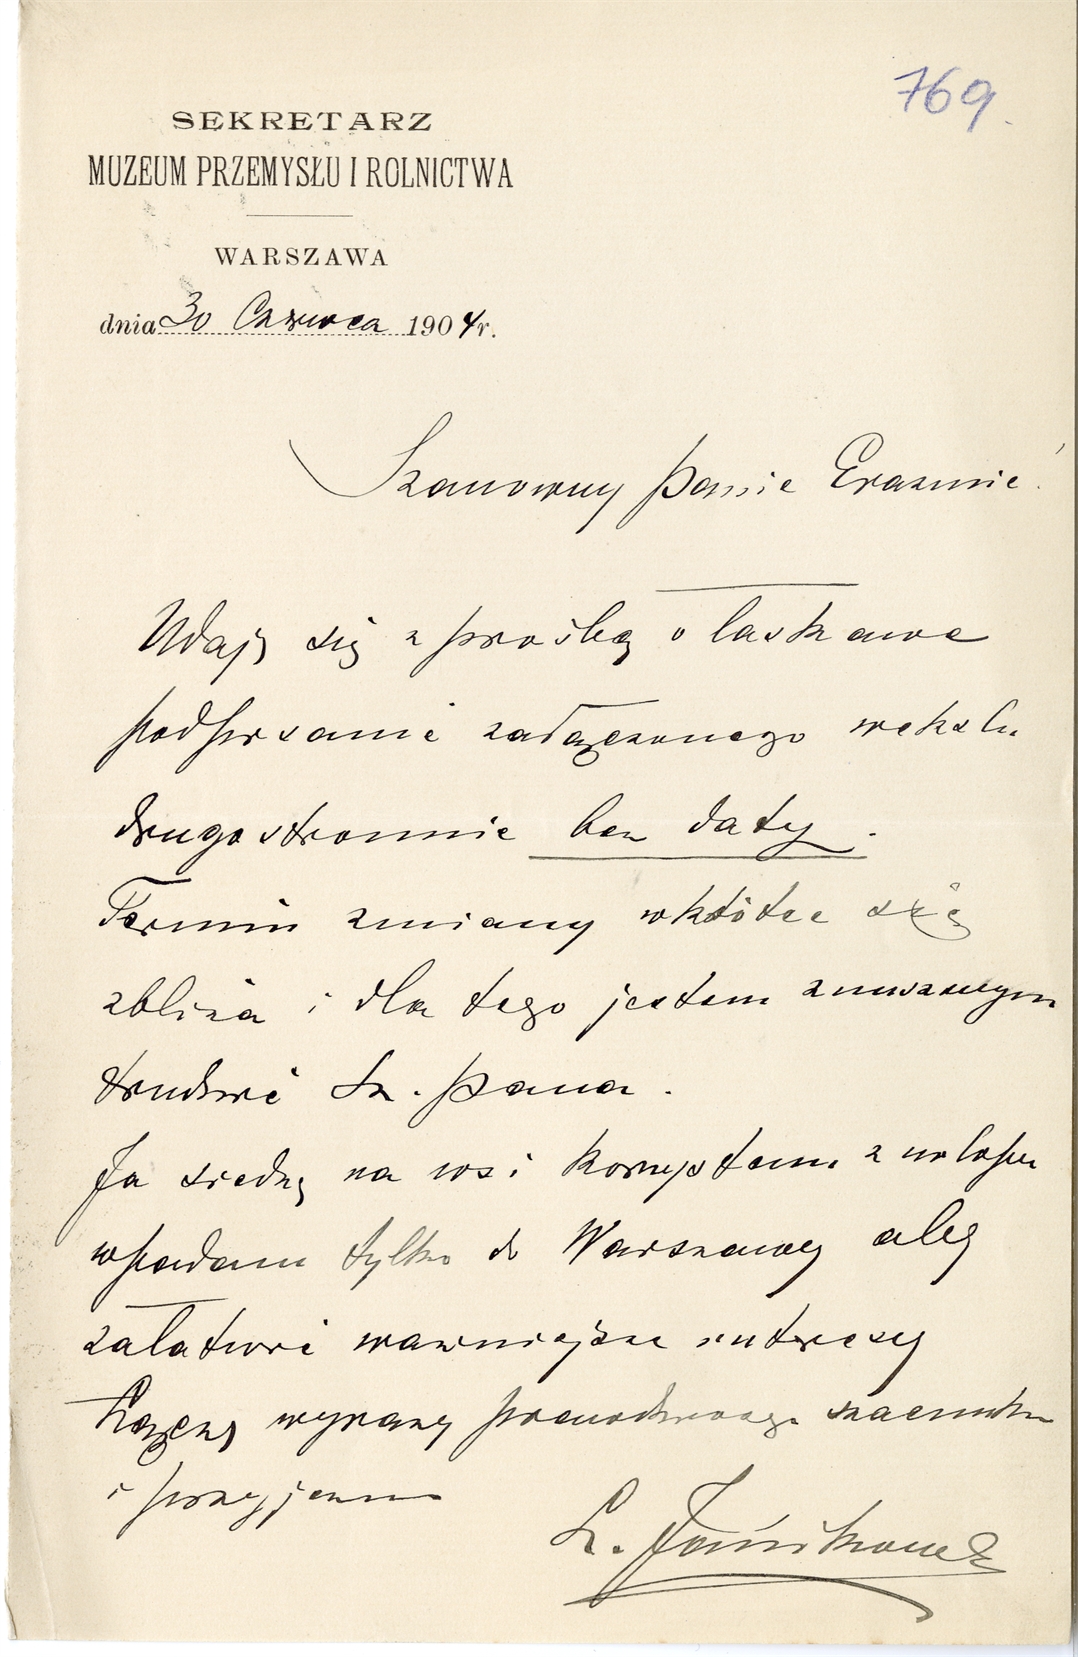 769.
SEKRETARZ
MUZEUM PRZEMYSŁU I ROLNICTWA
WARSZAWA
dnia 30 Czerwca 1904 r.
Szanowny Panie Erazmie
Udaję się z prośbą o łaskawe
podpisanie załączonego wekslu
drugostronnie bez daty.
Termin zmiany wkrótce się
zbliża i dla tego jestem zmuszonym
trudzić Sz. Pana.
Ja siedzę na wsi korzystam z urlopu
wpadam tylko do Warszawy aby
załatwić ważniejsze interesy
Łączę wyrazy prawdziwego szacunku
i przyjaźni